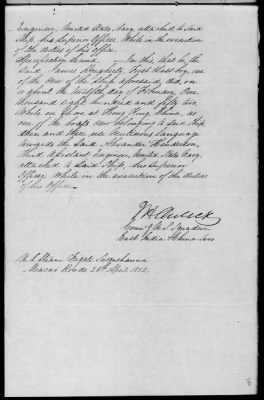 Engineer, United States Navy attached to said
Ship, his Superior Officer, While in the execution
of the duties of his office.
Specification Second — In this, that on the
said James Dougherty First Class boy, one
of the crew of the Ship aforesaid, did, on
or about the twelfth day of February, One
thousand eight hundred and fifty two,
While on shore at Hong Kong, China, as
one of the boat's crew belonging to said Ship
then and there use
language
towards the said Alexander Henderson,
Third Assistant Engineer, United States Navy,
attached to said Ship, his Superior
Officer, While in the execution of the duties
of his Office.
J H Aulick
Comdg U. S. Squadron
East India & China Seas
U. S. Steam Frigate Susquehanna
Macao Roads 26th April 1852.